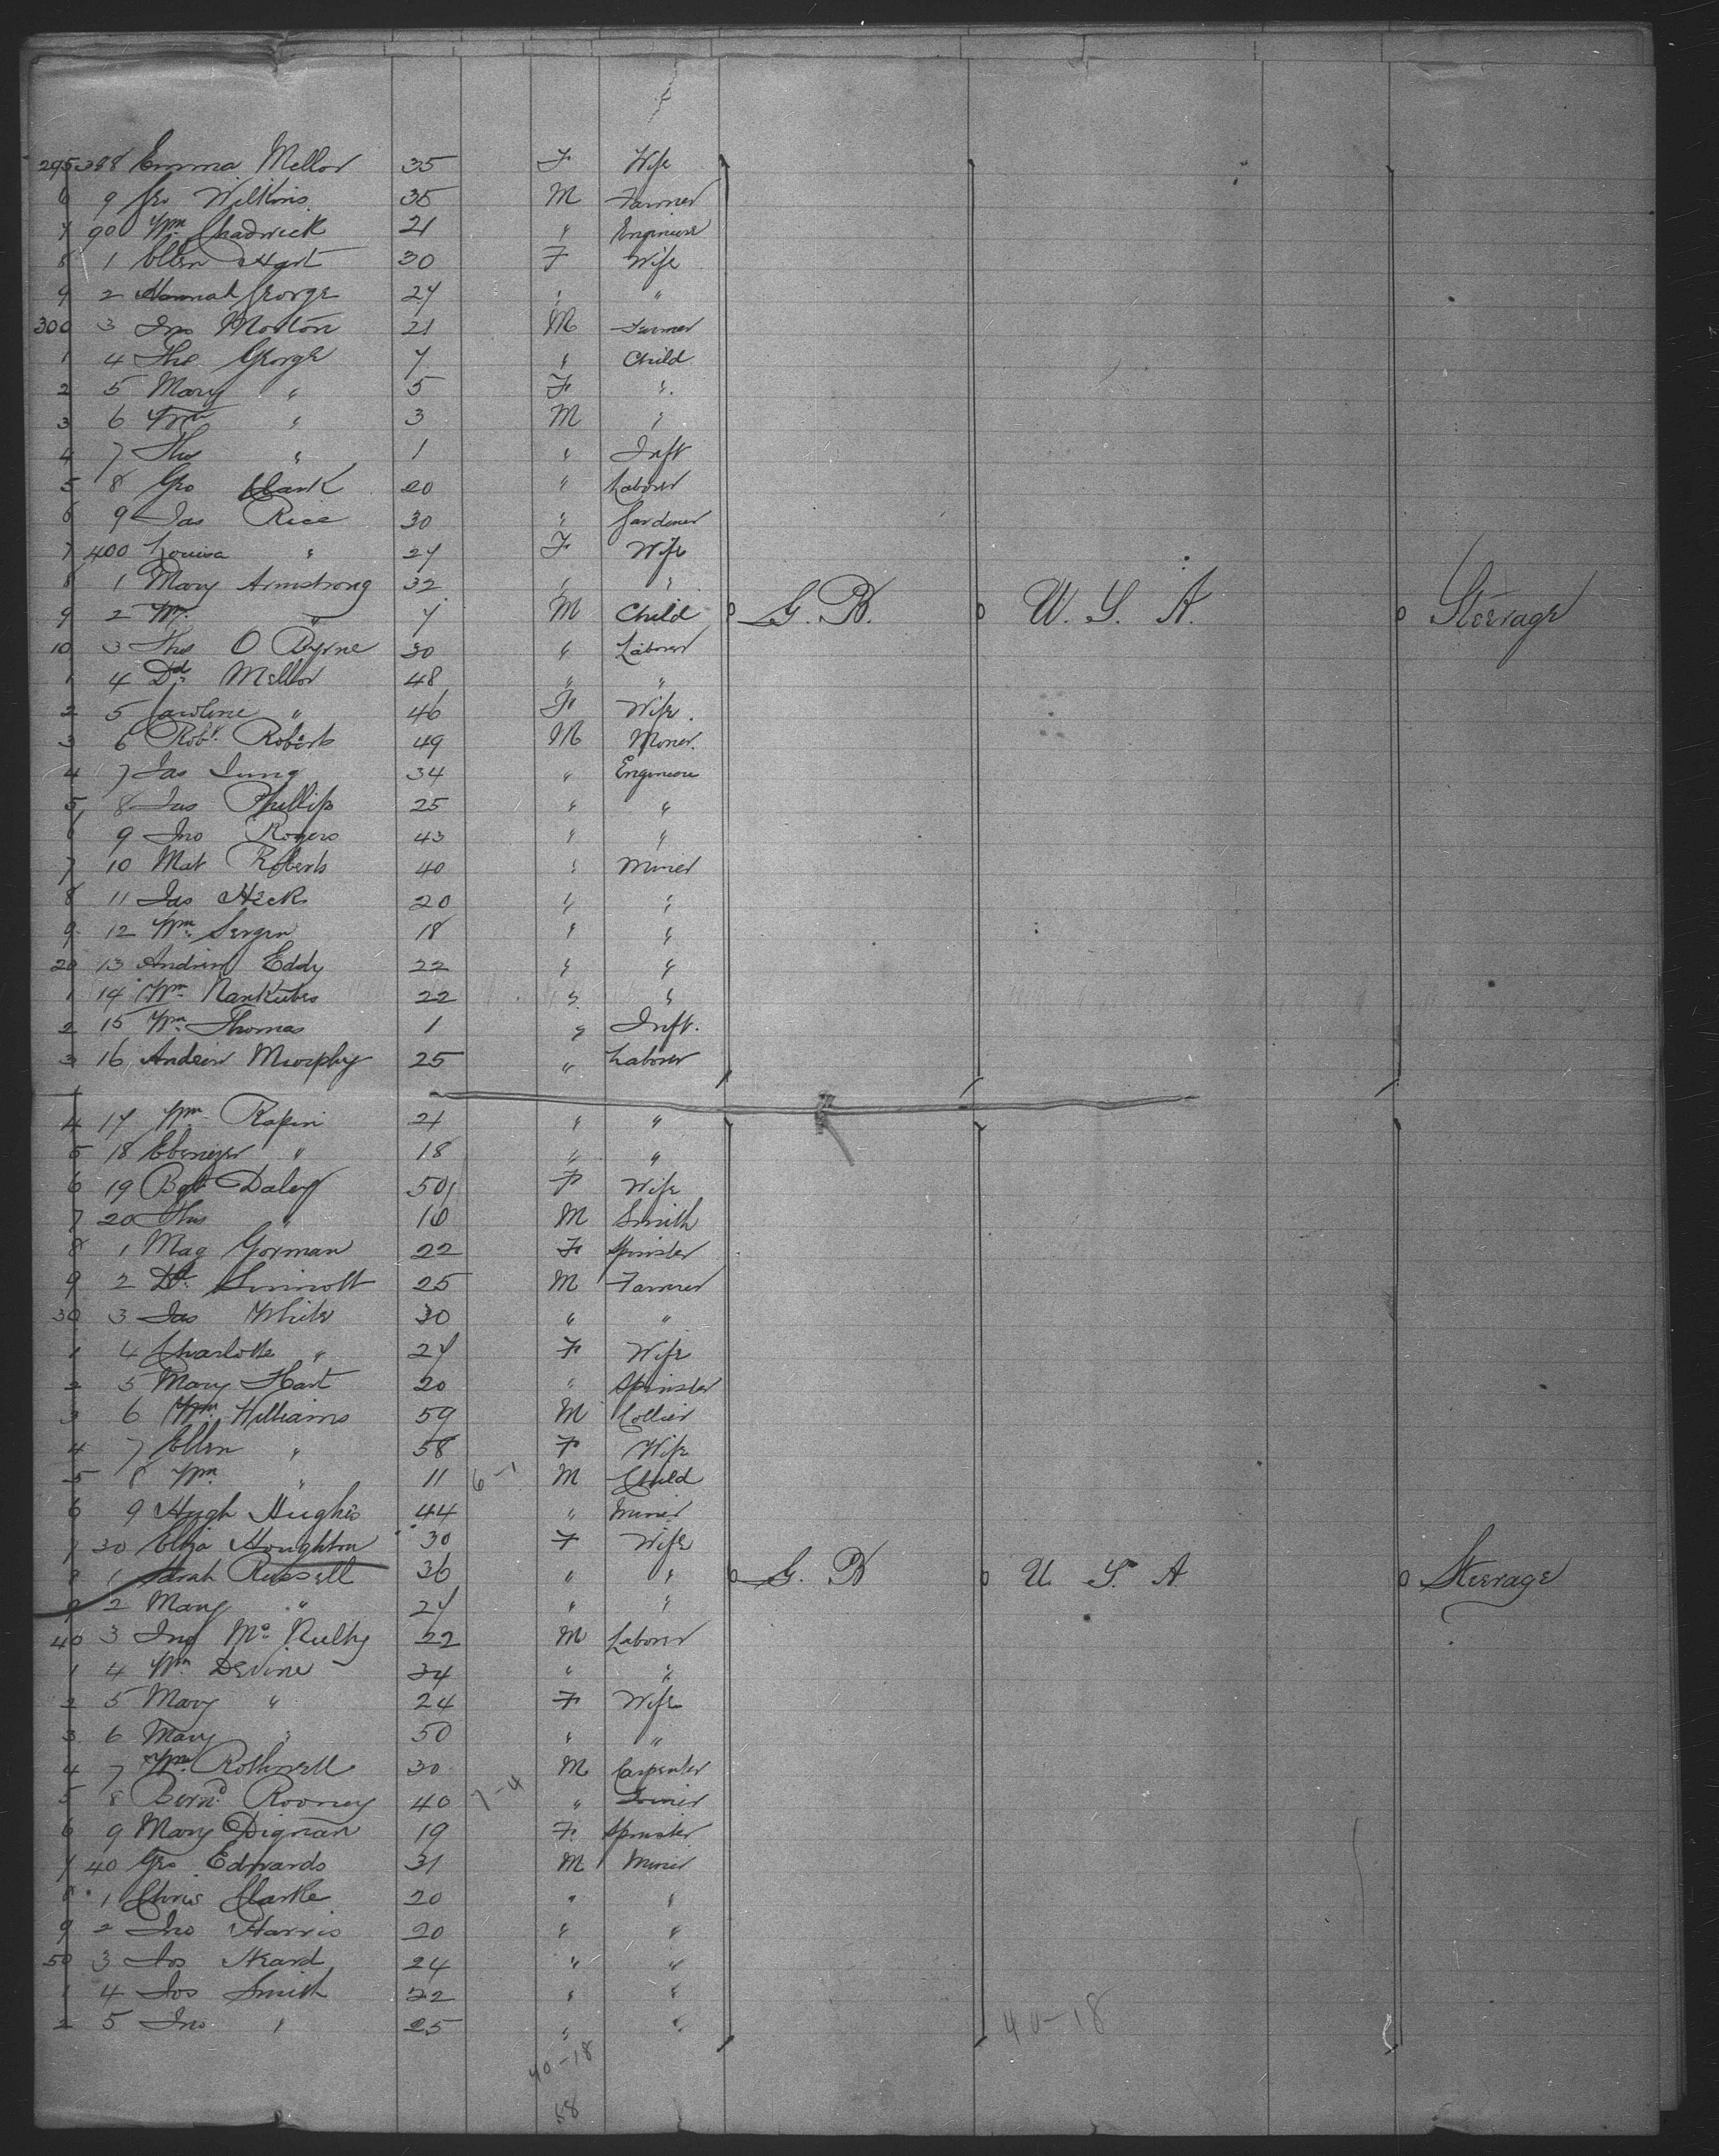 295 388 Emma Mellor 35 F Wife
6 9 Geo Wilkins 35 M Farmer
7 90 Wm Chadwick 21 " Engineer
8 1 Ellen Hart 30 F Wife
9 2 Hannah George 27 " "
300 3 Jno Morton 21 M Farmer
1 4 Tho George 7 " Child
2 5 Mary " 5 F "
3 6 Wm " 3 M "
4 7 Tho " 1 " Inft
5 8 Geo Clark 20 " Laborer
6 9 Jas Rice 30 " Gardener
7 400 Louisa " 27 F Wife
8 1 Mary Armstrong 32 " "
9 2 Wm " 7 M Child G. B. U. S. A. Steerage
10 3 Tho O Byrne 30 " Laborer
1 4 Dd Mellor 48 " "
2 5 Caroline " 46 F Wife
3 6 Robt Roberts 49 M Miner
4 7 Jas 34 " Engineer
5 8 Jas Phillips 25 " "
6 9 Jno Rogers 43 " "
7 10 Mat Roberts 40 " Miner
8 11 Jas Hicks 20 " "
9 12 Wm 18 " "
20 13 Andrew Eddy 22 " "
1 14 Wm 22 " "
2 15 Wm Thomas 1 " Inft.
3 16 Andrew Murphy 25 " Laborer
4 17 Wm 21 " "
5 18 Ebenezer " 18 " "
6 19 Bgt Daley 50 F Wife
7 20 Tho " 16 M Smith
8 1 Mag Gorman 22 F Spinster
9 2 Dd Sinnott 25 M Farmer
30 3 Jas White 30 " "
1 4 Charlotte " 27 F Wife
2 5 Mary Hart 20 " Spinster
3 6 Wm Williams 59 M Collier
4 7 Ellen " 58 F Wife
5 8 Wm " 11 6-1 M Child
6 9 Hugh Hughes 44 " Miner
7 30 Eliza Houghton 30 F Wife
8 1 Sarah Russell 36 " " G. B U. S. A Steerage
9 2 Mary " 27 " "
40 3 Jno McNulty 22 M Laborer
1 4 Wm Devine 34 " "
2 5 Mary " 24 F Wife
3 6 Mary " 50 " "
4 7 Wm Rothwell 30 M Carpenter
5 8 Bernd Rooney 40 7-4 " Joiner
6 9 Mary Dignan 19 F Spinster
7 40 Geo Edwards 31 M Miner
8 1 Chris Clarke 20 " "
9 2 Jno Harris 20 " "
50 3 Jos Heard 24 " "
1 4 Jos Smith 22 " "
2 5 Jno " 25 " "
40-18
40-18
58